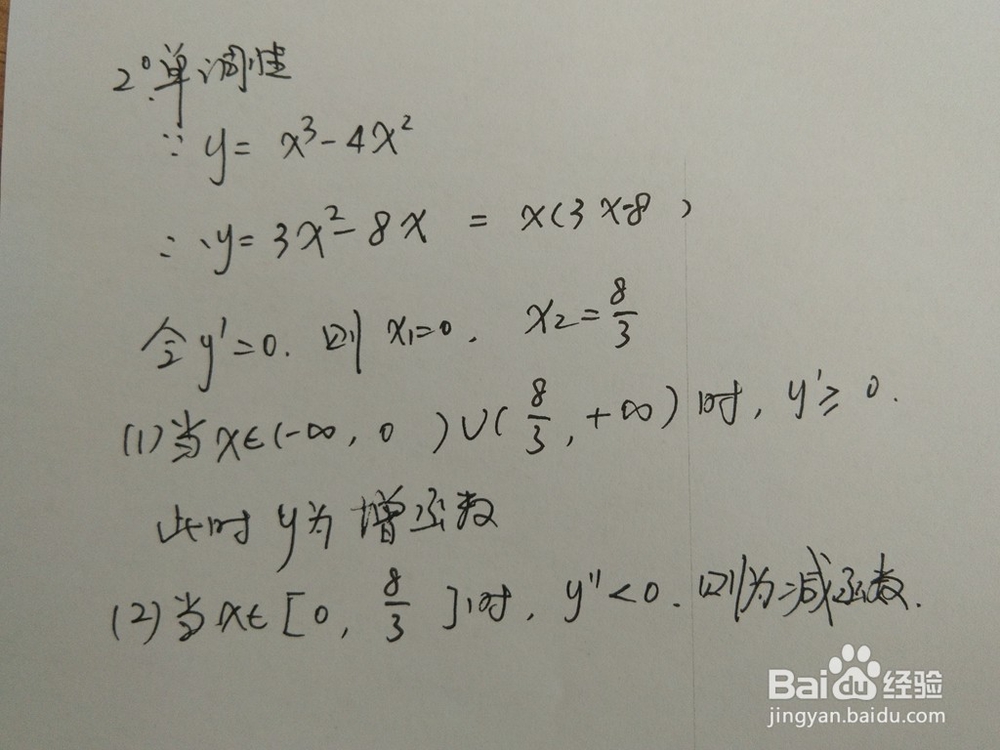 2°.单调性
∵ y = x³ - 4x²
∴ y = 3x² - 8x = x(3x-8)
令 y' = 0. 则 x₁=0. x₂ = 8/3
(1) 当 x∈(-∞, 0 )∪( 8/3, +∞) 时, y' ≥ 0.
此时 y 为 增函数
(2) 当 x∈ [0, 8/3 ] 时, y'' < 0. 则为减函数.
Baidu 经验
jingyan.baidu.com